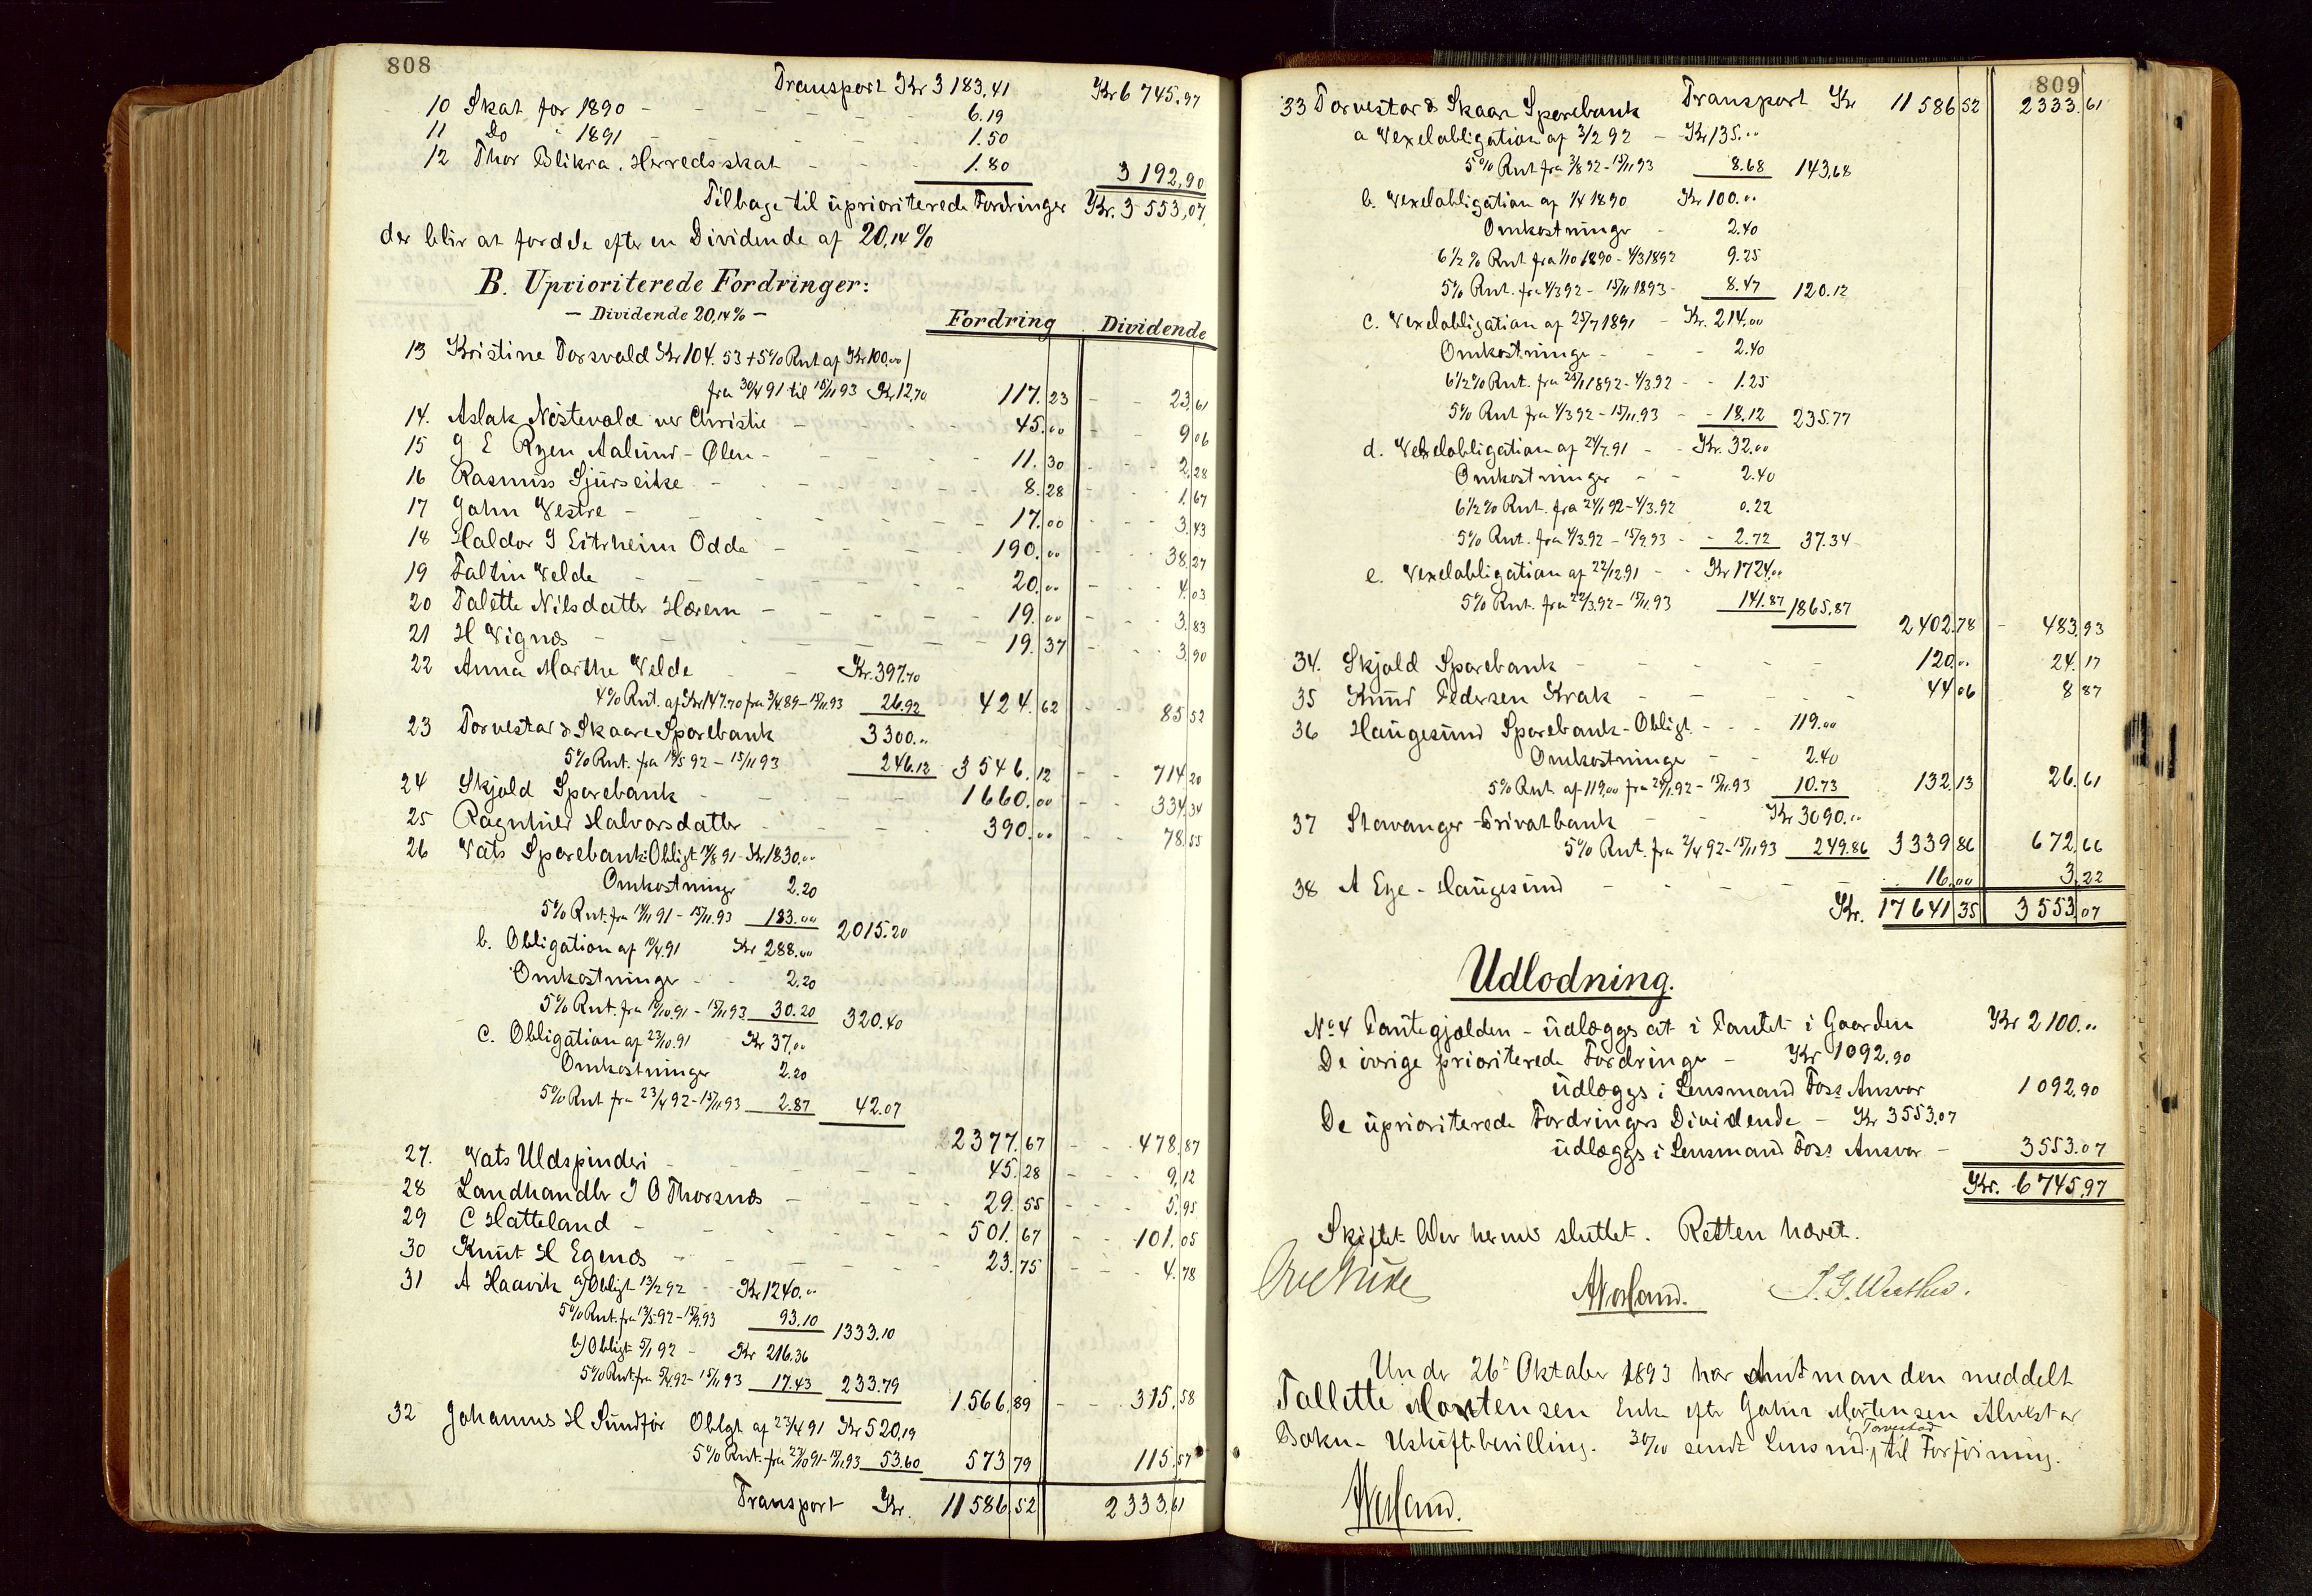 808
Transport Kr 3183.41 Kr 6745.97
10 Skat for 1890 - 6.19
11 Do " 1891 1.50
12 Thor Blikra. Herredsskat - - 1.80 3192,90
Tilbage til uprioriterede Fordringer Kr. 3553,07
der blir at fordele efter en Dividende af 20,14%
B. Uprioriterede Fordringer:
- Dividende 20,14% -
Fordring Dividende
13 Kristine Torsvald Kr 104.53 + 5% Rnt af Kr 100.00
fra 30/4 91 til 15/11 93 Kr 12,70 117.23 - - 23,61
14. Aslak Nøstevold ver Christie - 45.00 - - 9,06
15 G E Ryen Aalund - Ølen - 11.30 - - 2,28
16 Rasmus Sjurseike - 8.28 - - 1,67
17 John Vestre - 17.00 - - 3,43
18 Haldor J Eitrheim Odda - 190.00 - - 38,27
19 Faltin Velde - 20.00 - 4,03
20 Talette Nilsdatter Hærem - 19.00 - 3,83
21 H Vignæs - 19.37 - - 3,90
22 Anna Marthe Velde - Kr. 397.70
4% Rnt. af Kr 147.70 fra 3/4 89 - 15/11 93 26.92 424.62 - - 85,52
23 Torvestad & Skaare Sparebank 3300.00
5% Rnt. fra 19/5 92 - 15/11 93 246.12 3546.12 - - 714,20
24 Skjold Sparebank - 1660.00 - - 334,34
25 Ragnhild Halvorsdatter - 390.00 - - 78,55
26 Vats Sparebank: Obligt 14/8 91 - Kr 1830.00
Omkostninger 2.20
5% Rnt. fra 14/11 91 - 15/11.93 183.00 2015.20
b. Obligation af 10/4.91 Kr 288.00
Omkostninger - 2.20
5% Rnt. fra 10/10.91 - 15/11 93 30.20 320.40
c. Obligation af 23/10.91 Kr 37.00
Omkostninger 2.20
5% Rnt fra 23/4 92 - 15/11 93 2.87 42.07
2377.67 - - 478,87
27. Vats Uldspinderi - 45.28 - - 9,12
28 Landhandler J O Thorsnæs - 29.55 - - 5,95
29 C Hatteland - 501.67 - - 101,05
30 Knut H Egenæs - 23.75 - - 4,78
31 A Haavik a) Obligt 13/2 92 - Kr 1240.00
5% Rnt. fra 13/5.92 - 15/11.93 93.10 1333.10
b) Obligt 5/1 92 - Kr 216.36
5% Rnt. fra 5/4.92 - 15/11 93 17.43 233.79
1566,89 - - 315,58
32 Johannes H Sundfør Obligt af 23/4 91 Kr 520,19
5% Rnt. fra 23/10 91 - 15/11.93 53.60 573,79 115,57
Transport Kr. 11586,52 2333,61
809
Transport Kr 11586,52 2333,61
33 Torvestad & Skaare Sparebank
a Vexelobligation af 3/2 92 - Kr 135.00
5% Rnt fra 3/8 92 - 15/11 93 8.68 143,68
b. Vexelobligation af 1/4 1890 Kr 100.00
Omkostninger - 2.40
6 1/2% Rnt fra 1/10 1890 - 4/3 1892 9.25
5% Rnt. fra 4/3 92 - 15/11 1893 - 8.47 120.12
c. Vexelobligation af 25/7 1891 - Kr. 214.00
Omkostninger - - 2.40
6 1/2% Rnt. fra 25/1 1892 - 4/3.92 - - 1.25
5% Rnt fra 4/3 92 - 15/11.93 - - 18.12 235.77
d. Vexelobligation af 24/7.91 - - Kr. 32.00
Omkostninger - - 2.40
6 1/2% Rnt. fra 24/1 92 - 4/3.92 0.22
5% Rnt. fra 4/3.92 - 15/11.93 - - 2.72 37.34
e. Vexelobligation af 22/12 91 - - Kr 1724.00
5% Rnt. fra 22/3.92 - 15/11.93 141.87 1865.87
2402,78 - 483,93
34. Skjold Sparebank - 120.00 24,17
35 Knud Pedersen Krak - 44,06 8,87
36 Haugesund Sparebank - Obligt - - 119.00
Omkostninger - - 2.40
5% Rnt af 119,00 fra 29/1.92 - 15/11.93 10.73 132,13 26,61
37 Stavanger Privatbank - - Kr 3090.00
5% Rnt. fra 2/4 92 - 15/11 93 249.86 3339,86 672,66
38 A Ege - Haugesund - 16,00 3,22
Kr. 17641,35 3553,07
Udlodning.
No 4 Pantegjælden - udlægges at i Pantet i Gaarden Kr 2100.00
De øvrige prioriterede Fordringer - Kr 1092.90
udlægges i Lensmand Foss Ansvar 1092,90
De uprioriterede Fordringers Dividende - Kr 3553.07
udlægges i Lensmand Foss Ansvar - 3553.07
Kr. 6745,97
Skiftet blev hermed sluttet. Retten hævet.
Under 26de Oktober 1893 har Amtmanden meddelt
Tallette Mortensen Enke efter John Mortensen Alvestad
Bokn - Uskiftebevilling. 30/10 sendt Lensmd. i Torvestad til Forføining.